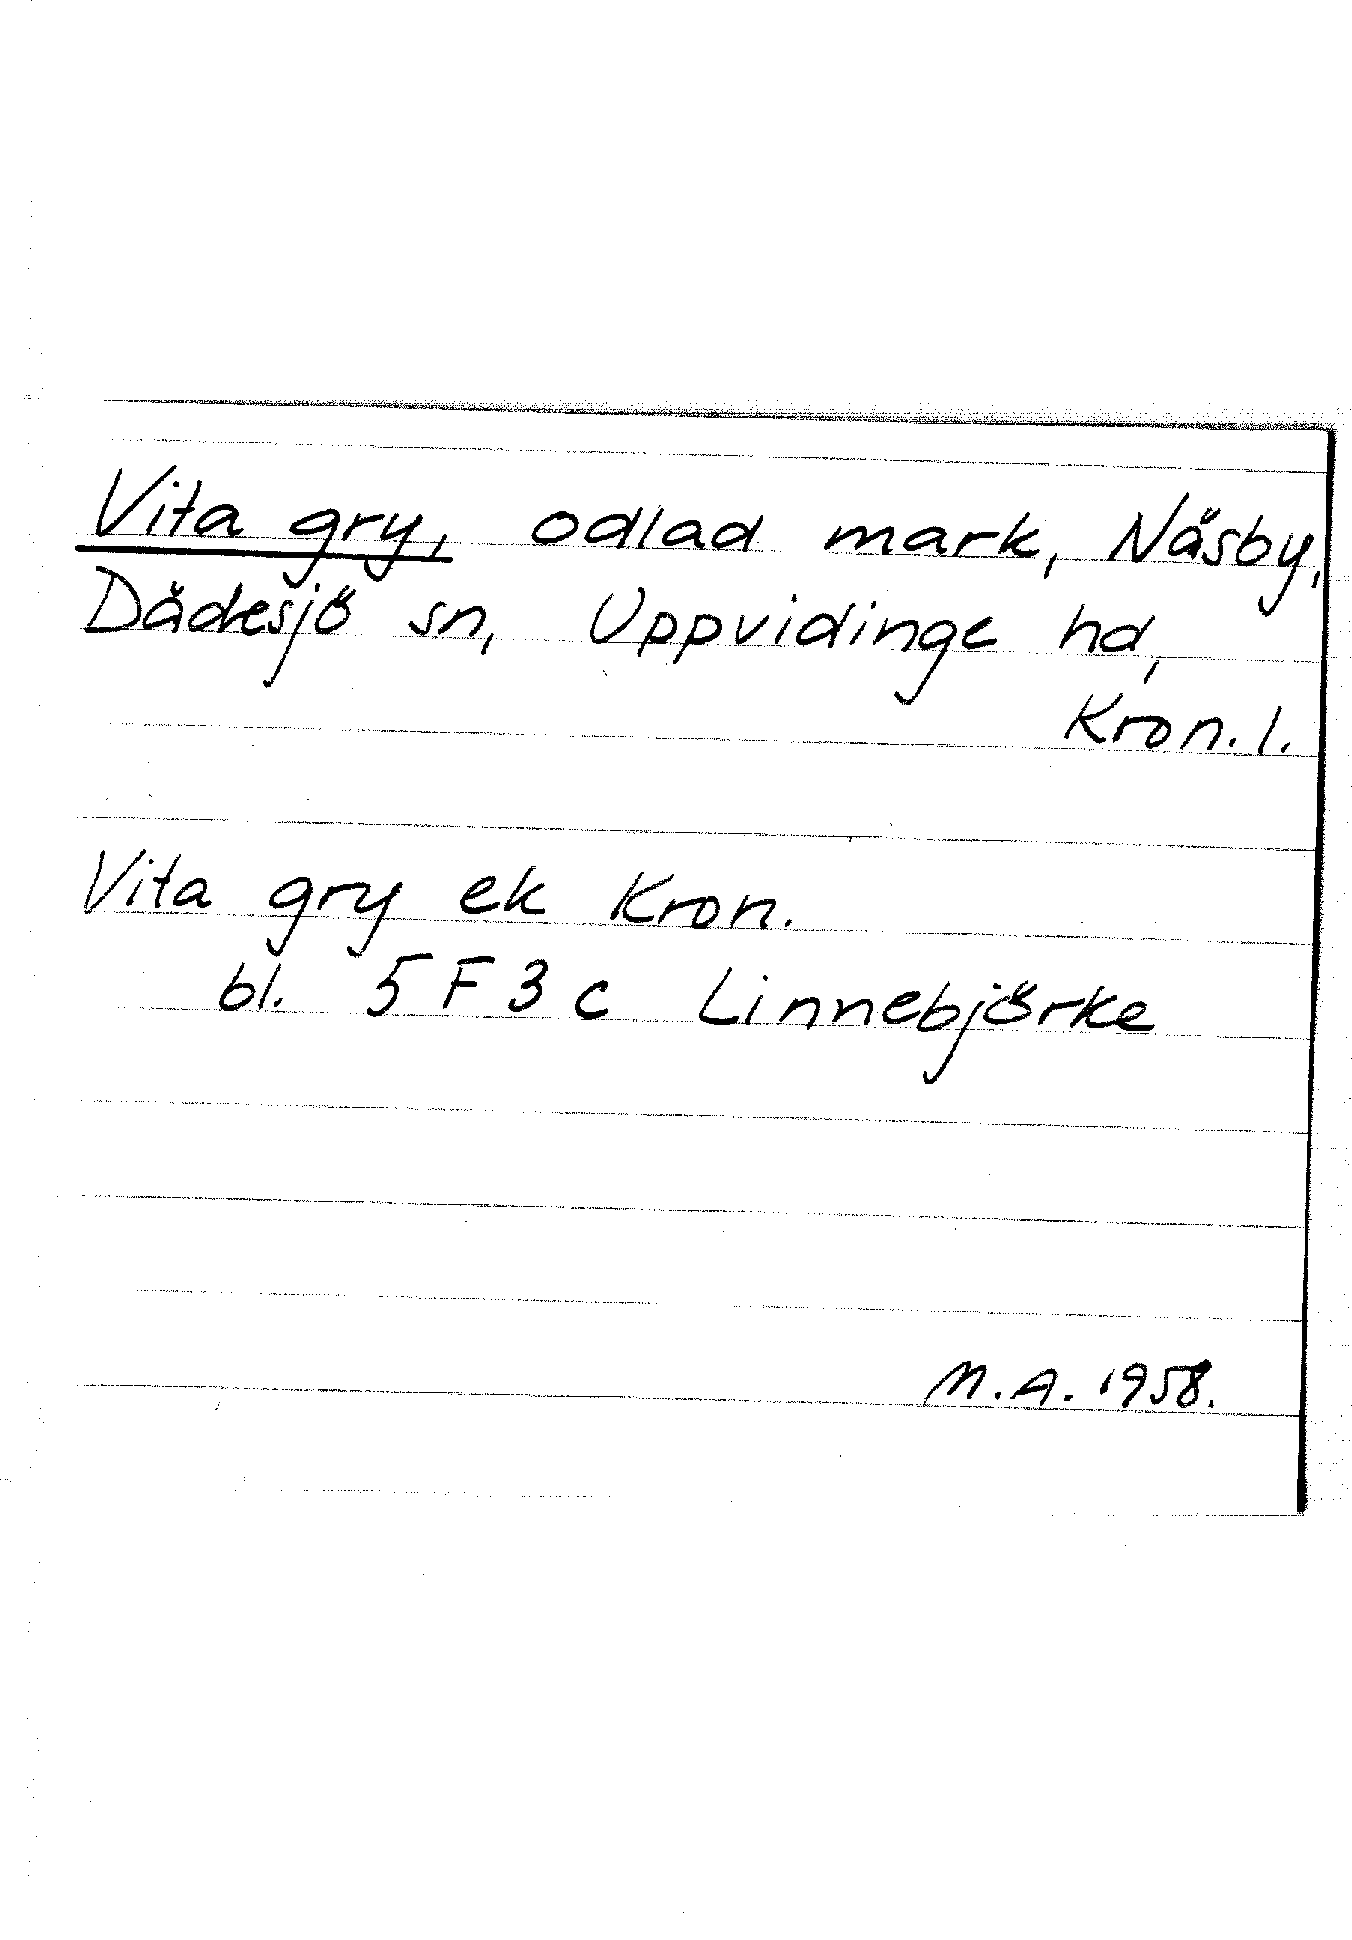 Vita gry, odlad mark, Näsby,
Dädesjö sn, Uppvidinge hd,
Kron. l.
Vita gry ek Kron.
bl. 5 F 3 c Linnebjörke
M. A. 1958.